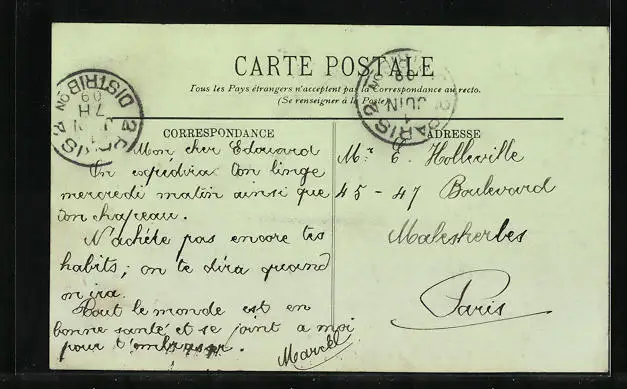 CARTE POSTALE
Tous les Pays étrangers n'acceptent pas la Correspondance au recto.
(Se renseigner à la Poste)
CORRESPONDANCE
Mon cher Edouard
On expédira ton linge
mercredi matin ainsi que
ton chapeau.
N'achéte pas encore tes
habits; on te dira quand
on ira.
Tout le monde est en
bonne santé et se joint a moi
pour t'embrasser.
Marcel
ADRESSE
Mr E. Holleville
45 - 47 Boulevard
Malesherbes
Paris
PARIS 2
DISTRIBON
7H
09
PARIS 2
JUIN
09